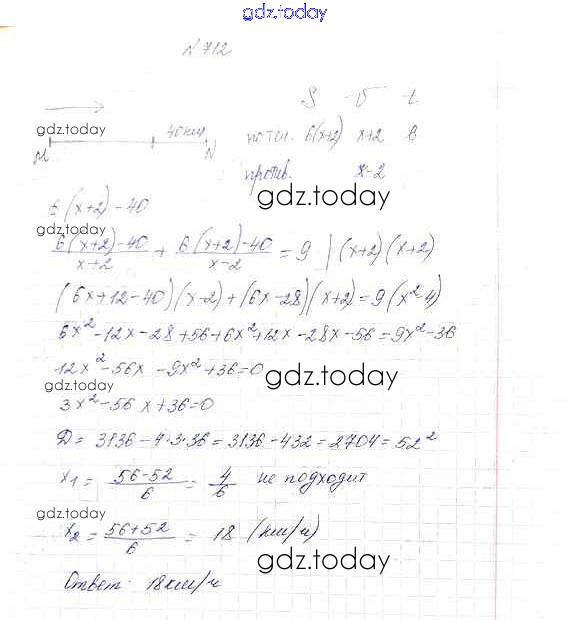 gdz.today
N 712
S v t
gdz.today
40 км
M N
по теч. 6(x+2) x+2 6
против. x-2
gdz.today
6(x+2)-40
gdz.today
6(x+2)-40/x+2 + 6(x+2)-40/x-2 = 9 | (x+2)(x+2)
(6x+12-40)(x-2)+(6x-28)(x+2)=9(x²-4)
6x²-12x-28+56+6x²+12x-28x-56=9x²-36
12x²-56x-9x²+36=0
gdz.today
gdz.today
3x²-56x+36=0
D = 3136-4·3·36=3136-432=2704=52²
x₁= 56-52/6 = 4/6 не подходит
gdz.today
x₂= 56+52/6 = 18 (км/ч)
gdz.today
Ответ: 18км/ч